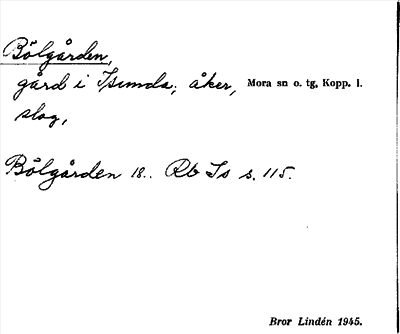 Bölgården,
gård i Isunda; åker, Mora sn o. tg, Kopp. l.
slog,
Bölgården 18.. Rb Is s. 115.
Bror Lindén 1945.